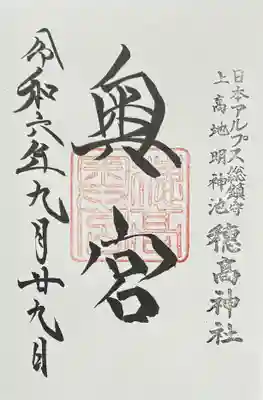 日本アルプス総鎮守
上高地明神池
穂高神社
奥宮
令和六年九月廿九日